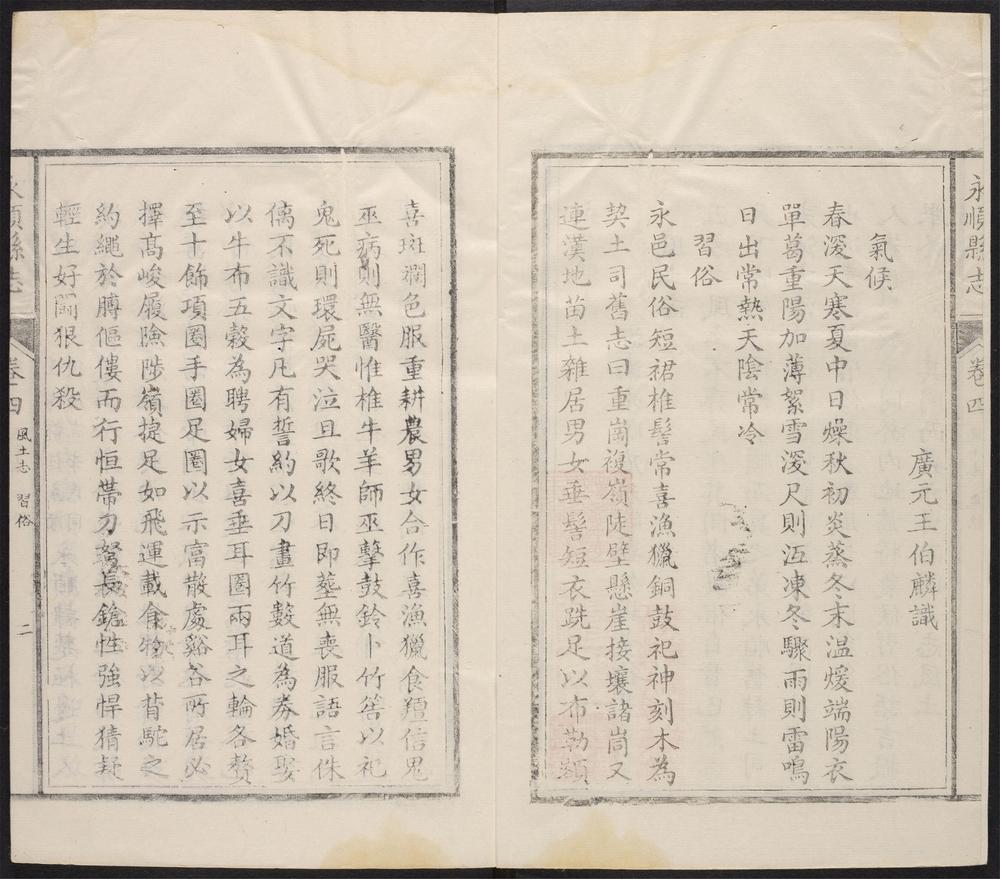 永順縣志
卷四
廣元王伯麟識
氣候
春深天寒夏中日燥秋初炎蒸冬末溫煖端陽衣
單葛重陽加薄絮雪深尺則冱凍冬驟雨則雷鳴
日出常熱天陰常冷
習俗
永邑民俗短裙椎髻常喜漁獵銅鼓祀神刻木為
契土司舊志曰重崗複嶺陡壁懸崖接壤諸峝又
連漢地苗土雜居男女垂髻短衣跣足以布勒額
喜斑斕色服重耕農男女合作喜漁獵食羶信鬼
巫病則無醫惟椎牛羊師巫擊鼓鈴卜竹筶以祀
鬼死則環屍哭泣且歌終日即塟無喪服語言侏
僪不識文字凡有誓約以刀畫竹數道為券婚娶
以牛布五穀為聘婦女喜垂耳圈兩耳之輪各贅
至十飾項圈手圈足圈以示富散處谿谷所居必
擇高峻履險陟嶺捷足如飛運載食物以背駝之
約繩於膊傴僂而行恒帶刀弩長鎗性強悍猜疑
輕生好鬪狠仇殺
永順縣志
卷四
風土志 習俗
二